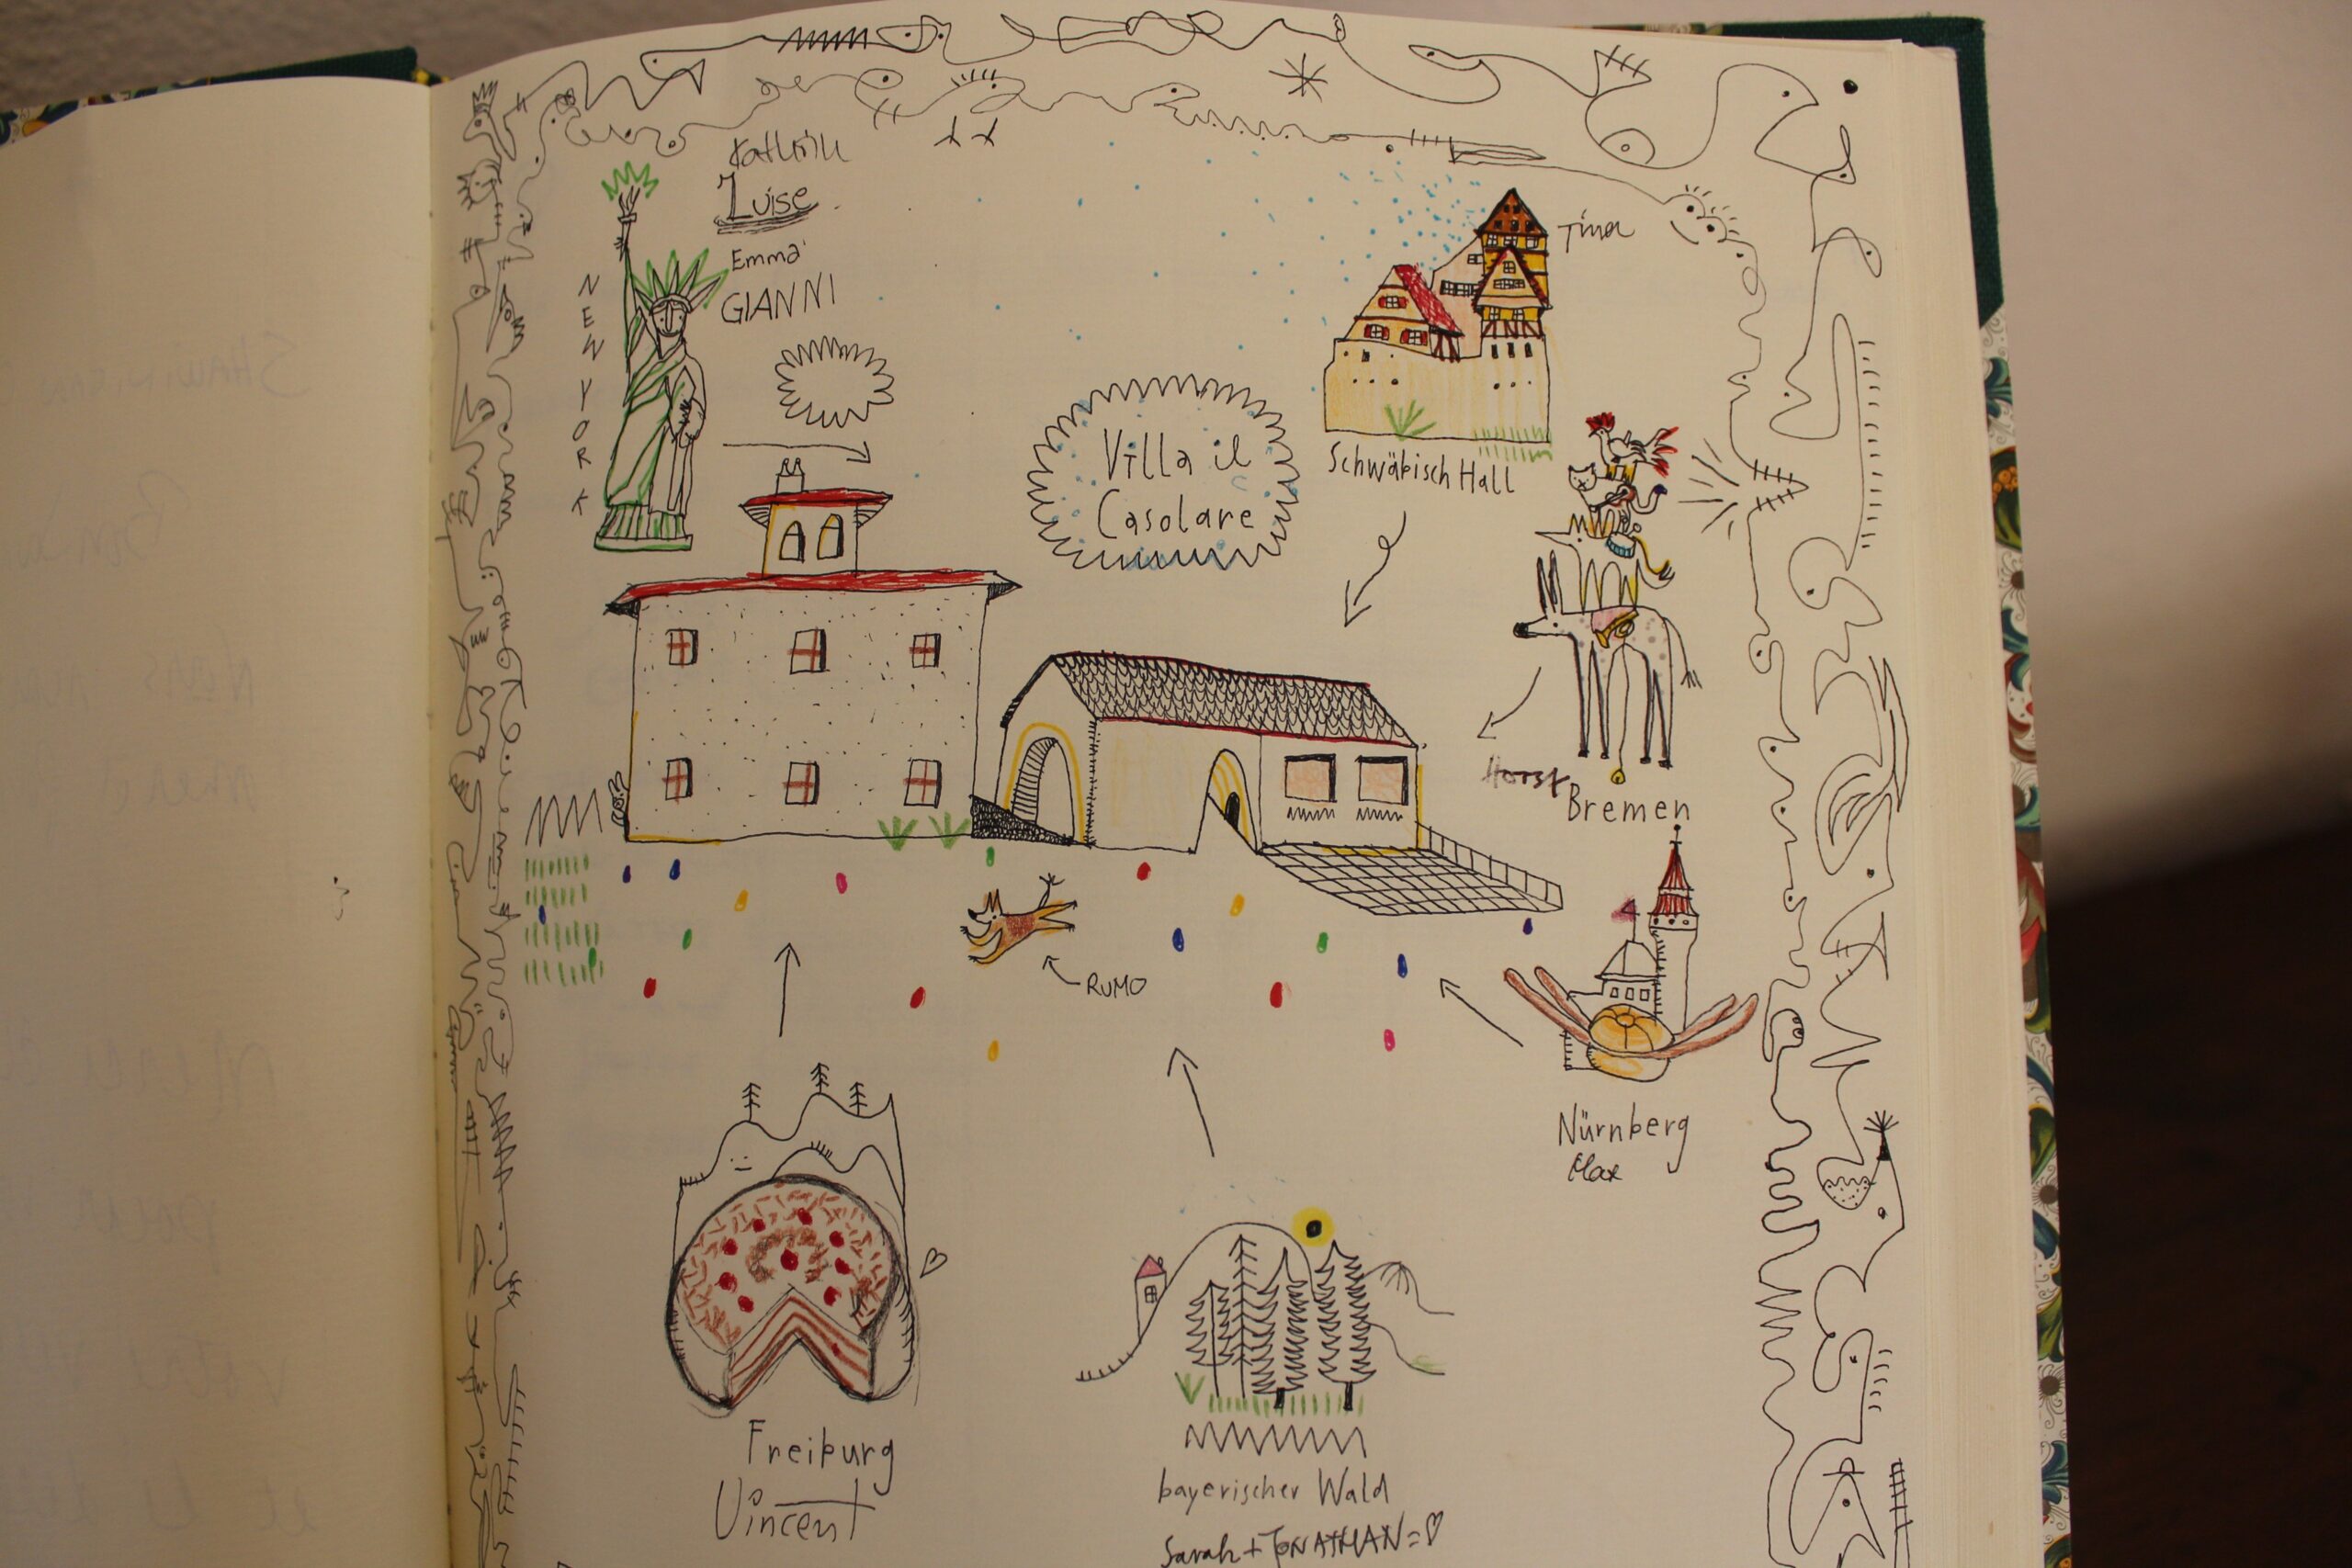 Kathrin
Luise
Emma
GIANNI
NEW YORK
Tina
Schwäbisch Hall
Villa il
Casolare
Horst
Bremen
RUMO
Nürnberg
Max
Freiburg
Vincent
bayerischer Wald
Sarah + JONATHAN = ♡